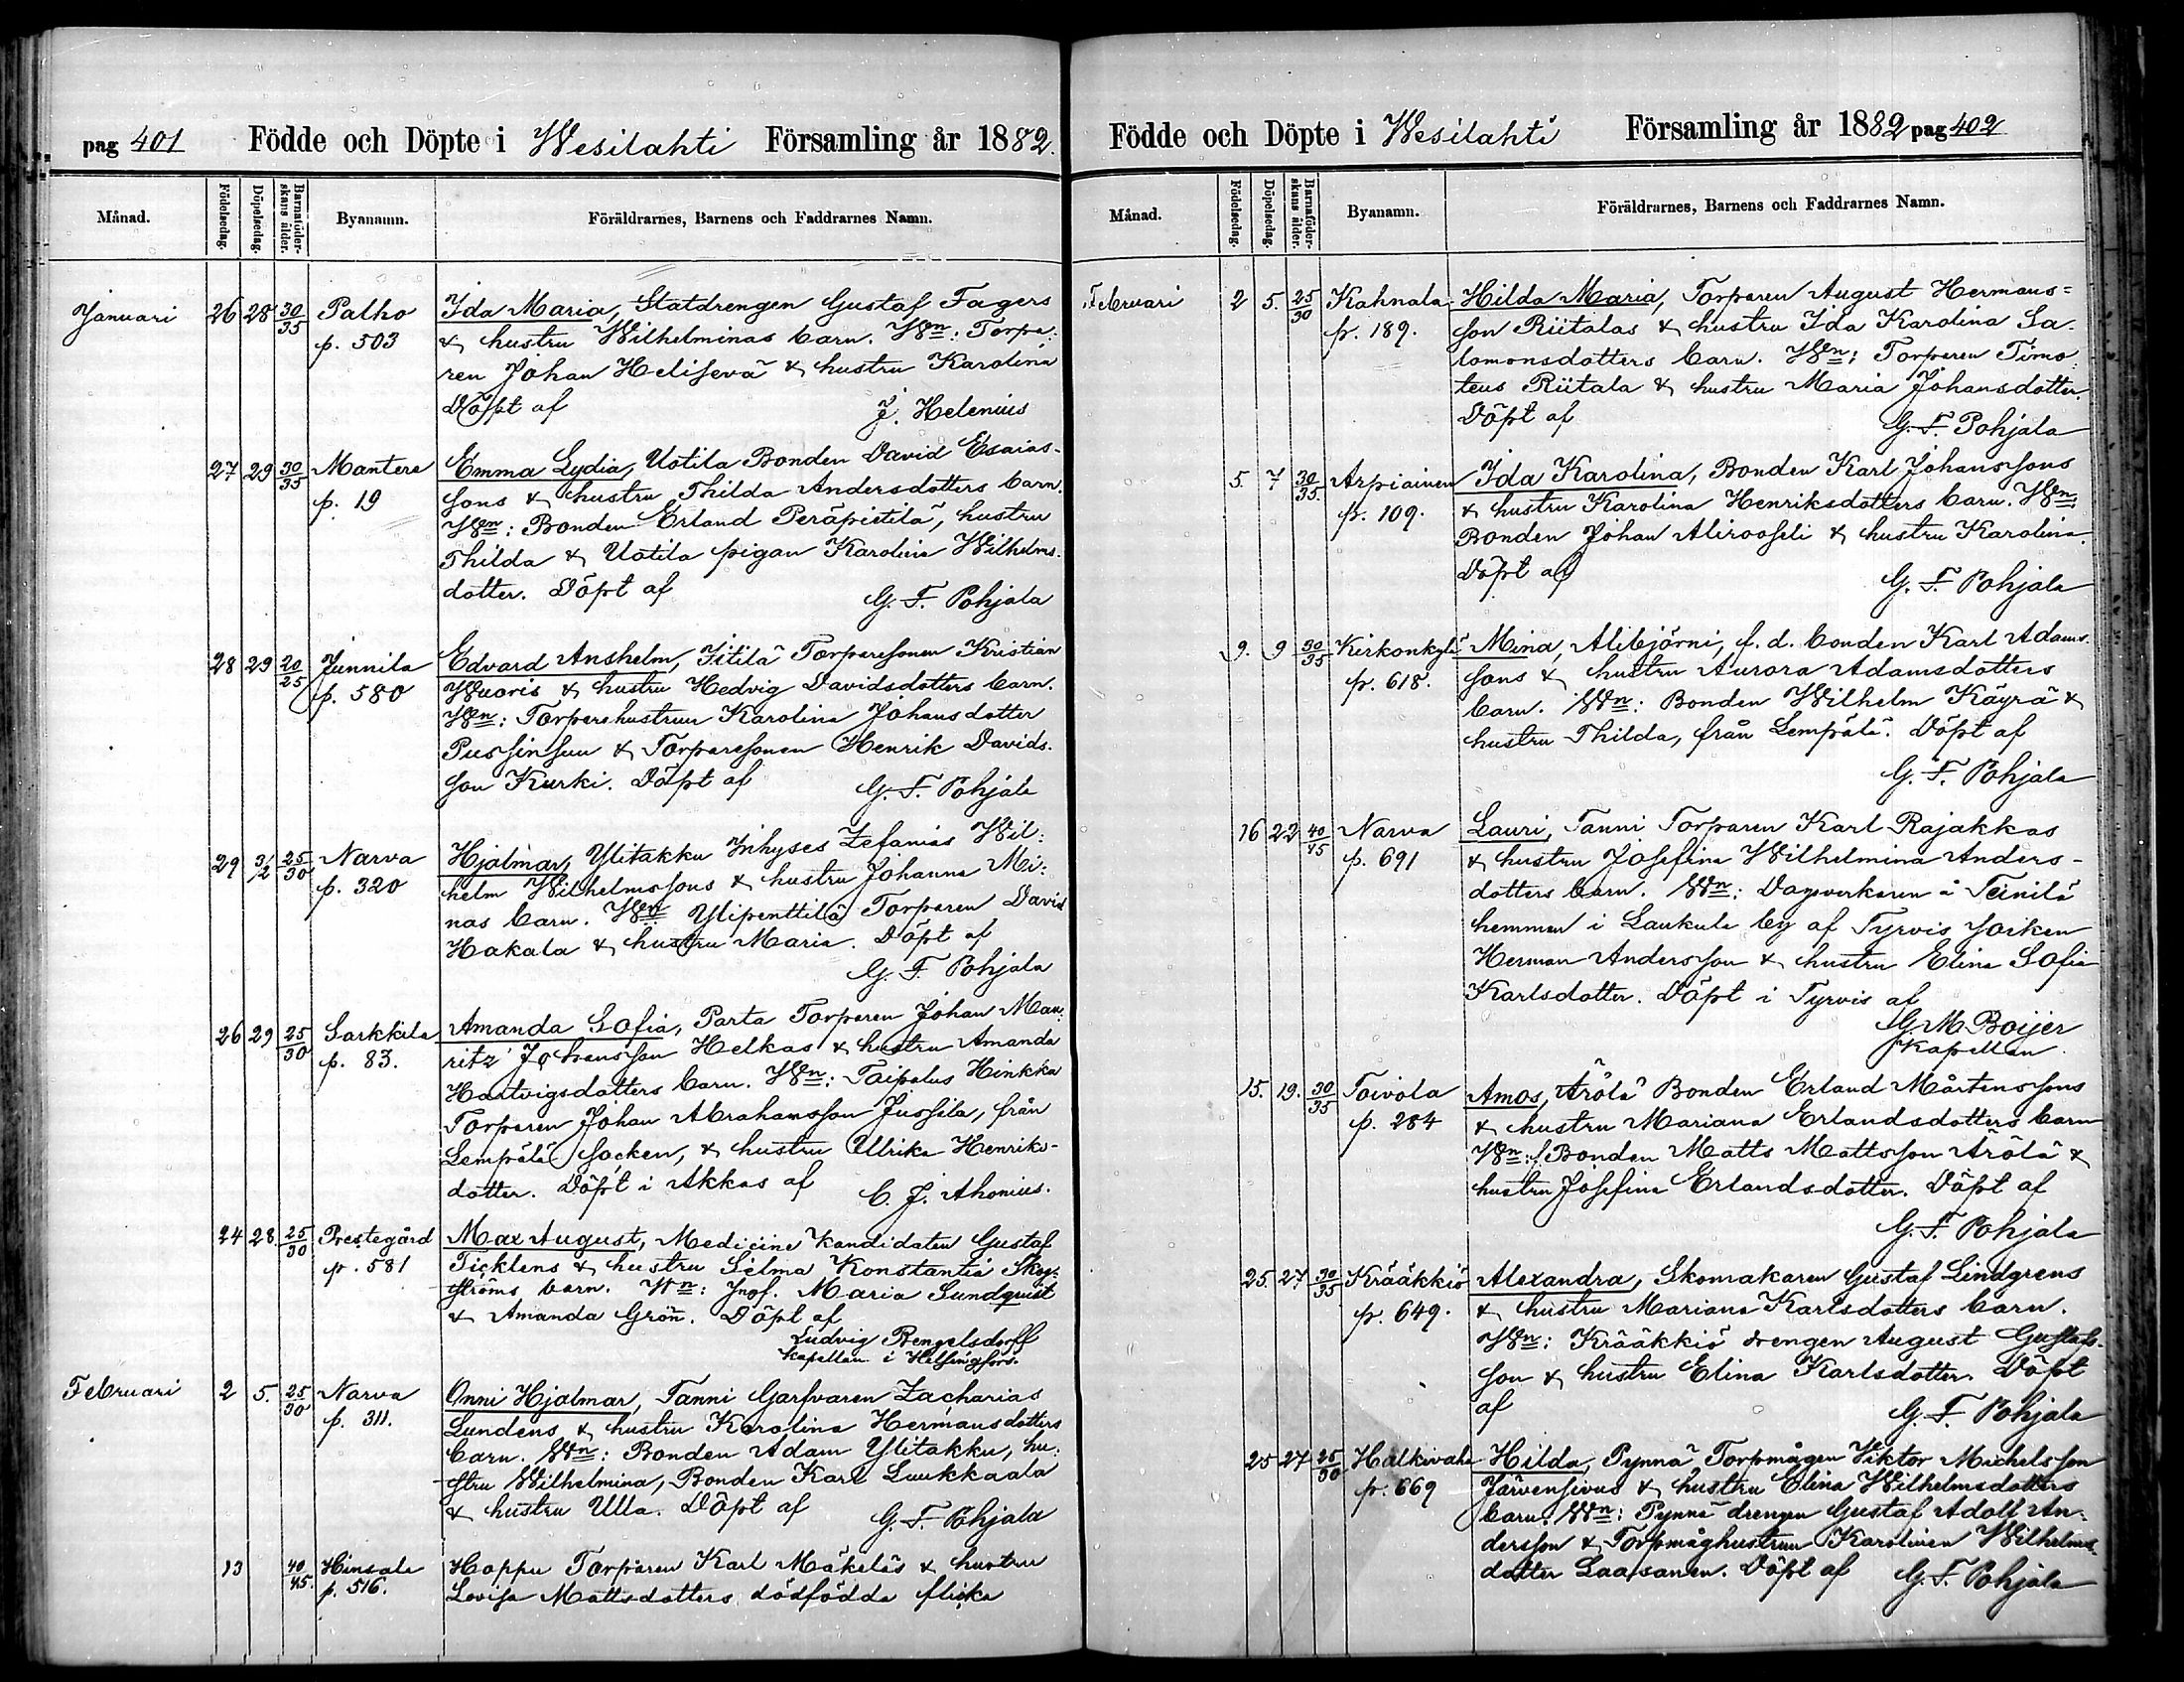 pag 401 Födde och Döpte i Wesilahti Församling år 1882.
Månad. Födelsedag. Döpelsedag. Barnaföderskans ålder. Byanamn. Föräldrarnes, Barnens och Faddrarnes Namn.
Januari 26 28 30/35 Palho Ida Maria, Statdrengen Gustaf Fagers
p. 503 & hustru Wilhelminas barn. Wn: Torpa-
ren Johan Helisevä & hustru Karolina
Döpt af J. Helenius
27 29 30/35 Mantere Emma Lydia, Uotila Bonden David Esaias-
p. 19 sons & hustru Thilda Andersdotters barn.
Wn: Bonden Erland Peräpietilä, hustru
Thilda & Uotila pigan Karolina Wilhelms-
dotter. Döpt af G. F. Pohjala
28 29 20/25 Junnila Edvard Anshelm, Iitilä Torparesonen Kristian
p. 580 Wuoris & hustru Hedvig Davidsdotters barn.
Wn: Torparehustrun Karolina Johansdotter
Pussinsuu & Torparesonen Henrik Davids-
son Kurki. Döpt af G. F. Pohjala
29 3/2 25/30 Narva Hjalmar, Ylitakku Inhyses Zefanias Wil-
p. 320 helm Wilhelmssons & hustru Johanna Mi-
nas barn. Wn Ylipenttilä Torparen David
Hakala & hustru Maria. Döpt af
G. F. Pohjala
26 29 25/30 Sarkkila Amanda Sofia, Parta Torparen Johan Mau-
p. 83. ritz Johansson Helkas & hustru Amanda
Hartvigsdotters barn. Wn: Taipalus Hinkka
Torparen Johan Abrahamsson Jussila, från
Lempälä socken, & hustru Ulrika Henriks-
dotter. Döpt i Akkas af C. J. Ahonius.
24 28 25/30 Prestegård Max August, Medicine Kandidaten Gustaf
p. 581 Ticklens & hustru Selma Konstantia Skog-
ströms barn. Wn: Jngf. Maria Sundquist
& Amanda Grön. Döpt af
Ludvig Bengelsdorff
kapellan i Helsingfors.
Februari 2 5. 25/30 Narva Onni Hjalmar, Tanni Garfvaren Zacharias
p. 311. Lundens & hustru Karolina Hermansdotters
barn. Wn: Bonden Adam Ylitakku, hu-
stru Wilhelmina, Bonden Karl Luukkaala
& hustru Ulla. Döpt af G. F. Pohjala
13 40/45. Hinsala Hoppu Torparen Karl Mäkeläs & hustru
p. 516. Lovisa Mattsdotters dödfödda flicka
Födde och Döpte i Wesilahti Församling år 1882 pag 402
Månad. Födelsedag. Döpelsedag. Barnaföderskans ålder. Byanamn. Föräldrarnes, Barnens och Faddrarnes Namn.
Februari 2 5. 25/30 Kahnala Hilda Maria, Torparen August Hermans=
p. 189. son Riitalas & hustru Ida Karolina Sa-
lomonsdotters barn. Wn: Torparen Timo-
teus Riitala & hustru Maria Johansdotter.
Döpt af G. F. Pohjala
5. 7 30/35. Arpiainen Ida Karolina, Bonden Karl Johanssons
p. 109. & hustru Karolina Henriksdotters barn. Wn:
Bonden Johan Alirooseli & hustru Karolina.
Döpt af G. F. Pohjala
9. 9 30/35 Kirkonkylä Mina, Alibjörni, f. d. bonden Karl Adams-
p. 618. sons & hustru Aurora Adamsdotters
barn. Wn: Bonden Wilhelm Käyrä &
hustru Thilda, från Lempälä. Döpt af
G. F. Pohjala
16 22 40/45 Narva Lauri, Tanni Torparen Karl Rajakkas
p. 691 & hustru Josefina Wilhelmina Anders-
dotters barn. Wn: Dagsverkaren å Teinilä
hemman i Laukula by af Tyrvis socken
Herman Andersson & hustru Elina Sofia
Karlsdotter. Döpt i Tyrvis af
G M Boijer
Kapellan.
15. 19. 30/35 Toivola Amos, Ärölä Bonden Erland Mårtenssons
p. 284 & hustru Mariana Erlandsdotters barn
Wn: Bonden Matts Mattsson Ärölä &
hustru Josefina Erlandsdotter. Döpt af
G. F. Pohjala
25. 27 30/35 Krääkkiö Alexandra, Skomakaren Gustaf Lindgrens
p. 649. & hustru Mariana Karlsdotters barn.
Wn: Krääkkiö drengen August Gustafs-
son & hustru Elina Karlsdotter. Döpt
af G. F. Pohjala
25 27 25/30 Halkivaha Hilda, Pynnä Torpmågen Viktor Michelsson
p. 669 Järvensivus & hustru Elina Wilhelmsdotters
barn. Wn: Pynnä drengen Gustaf Adolf An-
dersson & Torpmåghustrun Karolina Wilhelms-
dotter Laasanen. Döpt af G. F. Pohjala